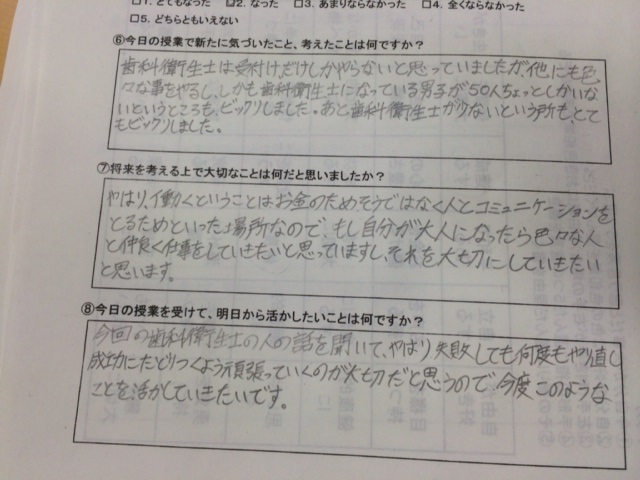 □1. とてもなった ☑2. なった □3. あまりならなかった □4. 全くならなかった
□5. どちらともいえない
⑥今日の授業で新たに気づいたこと、考えたことは何ですか？
歯科衛生士は受付けだけしかやらないと思っていましたが、他にも色
々な事をやるし、しかも歯科衛生士になっている男子が50人ちょっとしかいな
いというところも、ビックリしました。あと歯科衛生士が少ないという所も、とて
もビックリしました。
⑦将来を考える上で大切なことは何だと思いましたか？
やはり、働くということはお金のためそうではなく人とコミュニケーションを
とるためといった場所なので、もし自分が大人になったら色々な人
と仲良く仕事をしていきたいと思っていますし、それを大切にしていきたい
と思います。
⑧今日の授業を受けて、明日から活かしたいことは何ですか？
今回の歯科衛生士の人の話を聞いて、やはり失敗しても何度もやり直し
成功にたどりつくよう頑張っていくのが大切だと思うので、今度このような
ことを活かしていきたいです。